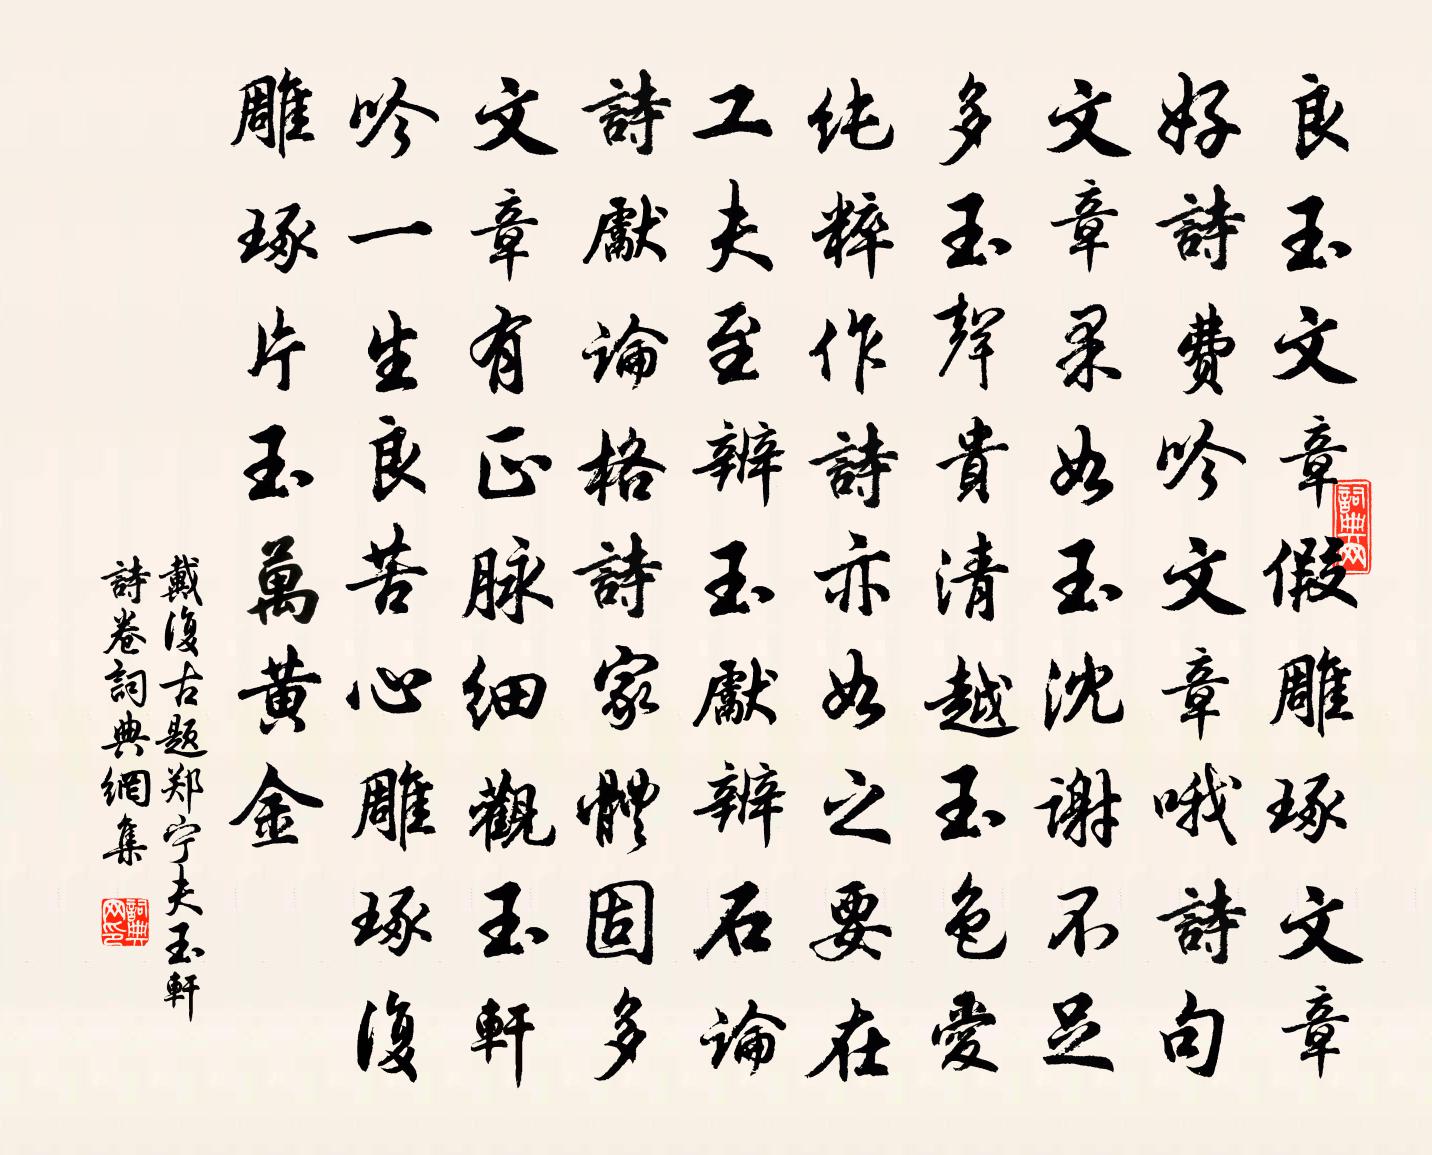 良玉文章假雕琢文章
好詩費吟文章哦詩句
文章果如玉沈謝不足
多玉聲貴清越玉色愛
纯粹作詩亦如之要在
工夫至辨玉獻辨石論
詩獻論格詩家體固多
文章有正脉细觀玉軒
吟一生良苦心雕琢復
雕琢片玉萬黄金
戴復古題郑宁夫玉軒
詩卷詞典網集
詞典网
詞典网印